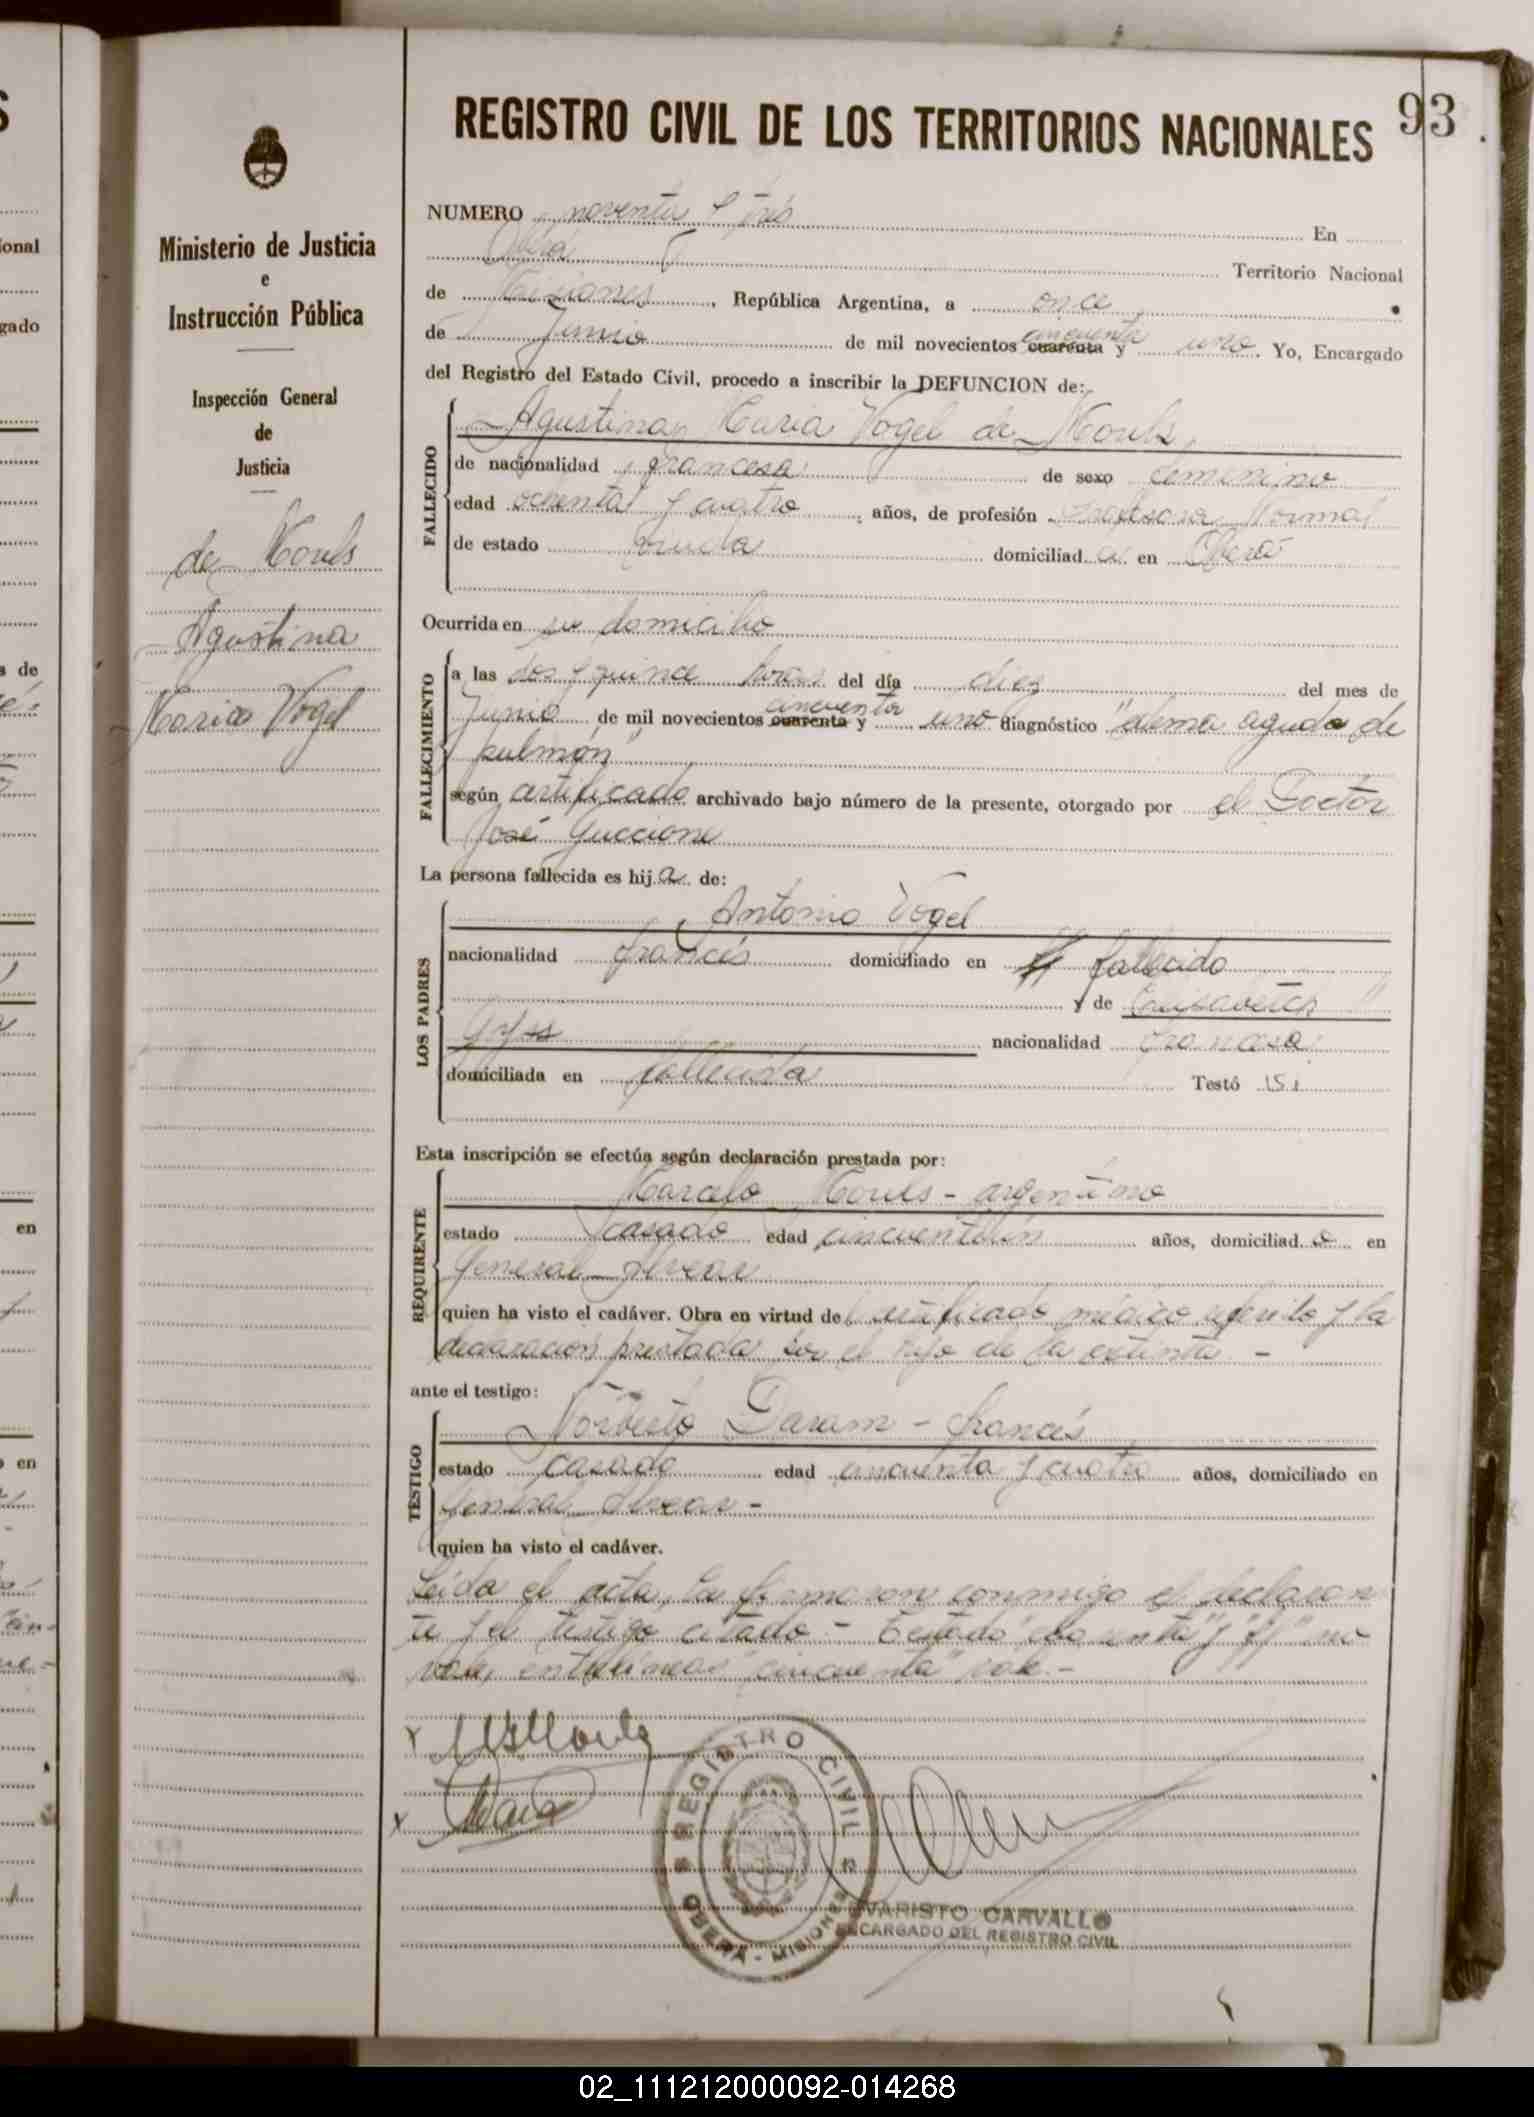 REGISTRO CIVIL DE LOS TERRITORIOS NACIONALES
93
Ministerio de Justicia
e
Instrucción Pública
Inspección General
de
Justicia
de Mouls
Agustina
Maria Vogel
NUMERO noventa y tres En
Oberá Territorio Nacional
de Misiones, República Argentina, a once
de Junio de mil novecientos cuarenta cincuenta y uno. Yo, Encargado
del Registro del Estado Civil, procedo a inscribir la DEFUNCION de:
FALLECIDO
Agustina Maria Vogel de Mouls
de nacionalidad francesa de sexo femenino
edad ochenta y cuatro años, de profesión Profesora Normal
de estado viuda domiciliad a en Oberá
Ocurrida en su domicilio
FALLECIMIENTO
a las dos y quince horas del día diez del mes de
Junio de mil novecientos cuarenta cincuenta y uno diagnóstico "edema agudo de
pulmón"
según certificado archivado bajo número de la presente, otorgado por el Doctor
José Guccione
La persona fallecida es hij a de:
LOS PADRES
Antonio Vogel
nacionalidad francés domiciliado en fallecido
y de
nacionalidad francesa
domiciliada en fallecida Testó
Esta inscripción se efectúa según declaración prestada por:
REQUIRENTE
Marcelo Mouls - argentino
estado casado edad años, domiciliad o en
General Alvear
quien ha visto el cadáver. Obra en virtud del certificado médico referido y la
declaración prestada por el hijo de la extinta. -
ante el testigo:
TESTIGO
Norberto Daram - francés
estado casado edad cincuenta y cuatro años, domiciliado en
General Alvear -
quien ha visto el cadáver.
Leída el acta, la firmaron conmigo el declaran
te y el testigo citado. - Testado "cuarenta" y no
vale, entrelíneas "cincuenta" vale. -
REGISTRO CIVIL
OBERA - MISIONES
EVARISTO CARVALLO
ENCARGADO DEL REGISTRO CIVIL
02_111212000092-014268